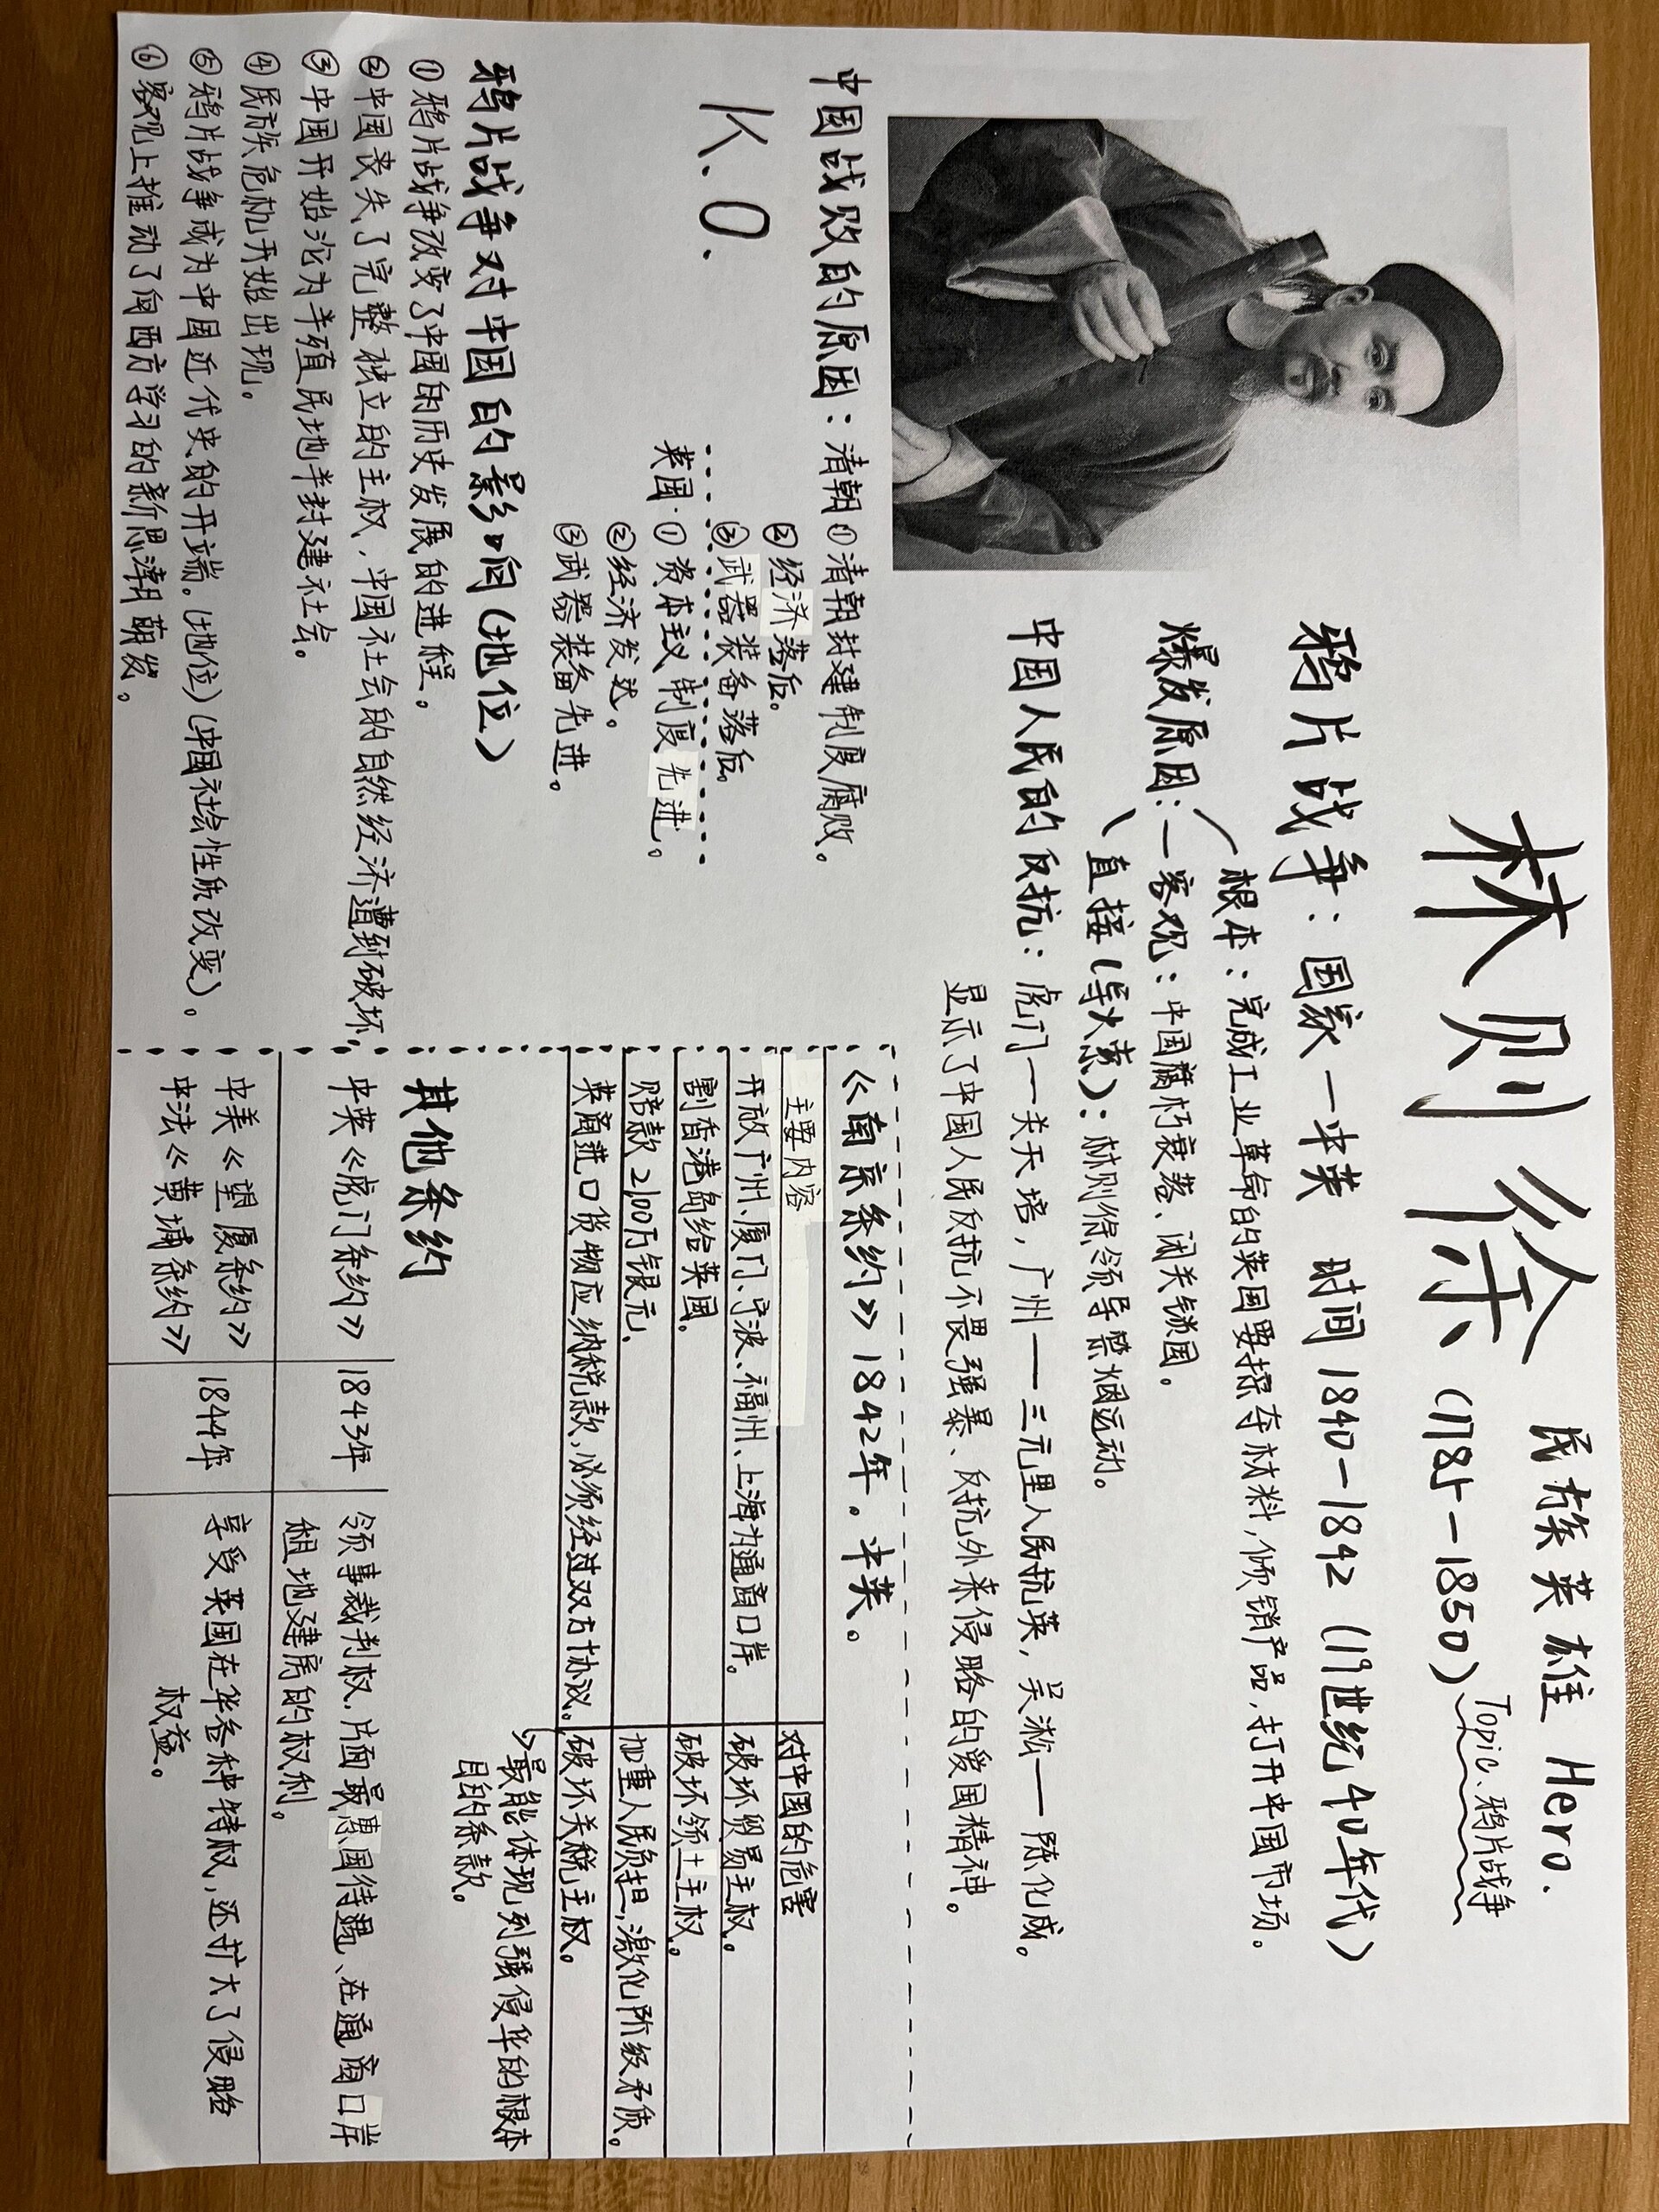 民族英雄 Hero.
林则徐 (1785-1850)
Topic、鸦片战争
鸦片战争：国家—中英 时间 1840-1842 (19世纪40年代)
爆发原因：
根本：完成工业革命的英国要掠夺材料，倾销产品，打开中国市场。
客观：中国腐朽衰落、闭关锁国。
直接(导火索)：林则徐领导禁烟运动。
中国人民的反抗：虎门——关天培，广州——三元里人民抗英，吴淞——陈化成。
显示了中国人民反抗不畏强暴、反抗外来侵略的爱国精神。
中国战败的原因：清朝①清朝封建制度腐败。
②经济落后。
③武器装备落后。
K.O.
英国·①资本主义制度先进。
②经济发达。
③武器装备先进。
鸦片战争对中国的影响(地位)
①鸦片战争改变了中国的历史发展的进程。
②中国丧失了完整独立的主权，中国社会的自然经济遭到破坏。
③中国开始沦为半殖民地半封建社会。
④民族危机开始出现。
⑤鸦片战争成为中国近代史的开端。(地位)(中国社会性质改变)。
⑥客观上推动了向西方学习的新思潮萌发。
《南京条约》1842年。中英。
主要内容 对中国的危害
开放广州、厦门、宁波、福州、上海为通商口岸。 破坏贸易主权。
割香港岛给英国。 破坏领土主权。
赔款2100万银元。 加重人民负担，激化阶级矛盾。
英商进口货物应纳税款，必须经过双方协议。 破坏关税主权。
→最能体现列强侵华的根本
目的条款。
其他条约
中英《虎门条约》 1843年 领事裁判权，片面最惠国待遇、在通商口岸
租地建房的权利。
中美《望厦条约》
中法《黄埔条约》 1844年 享受英国在华各种特权，还扩大了侵略
权益。